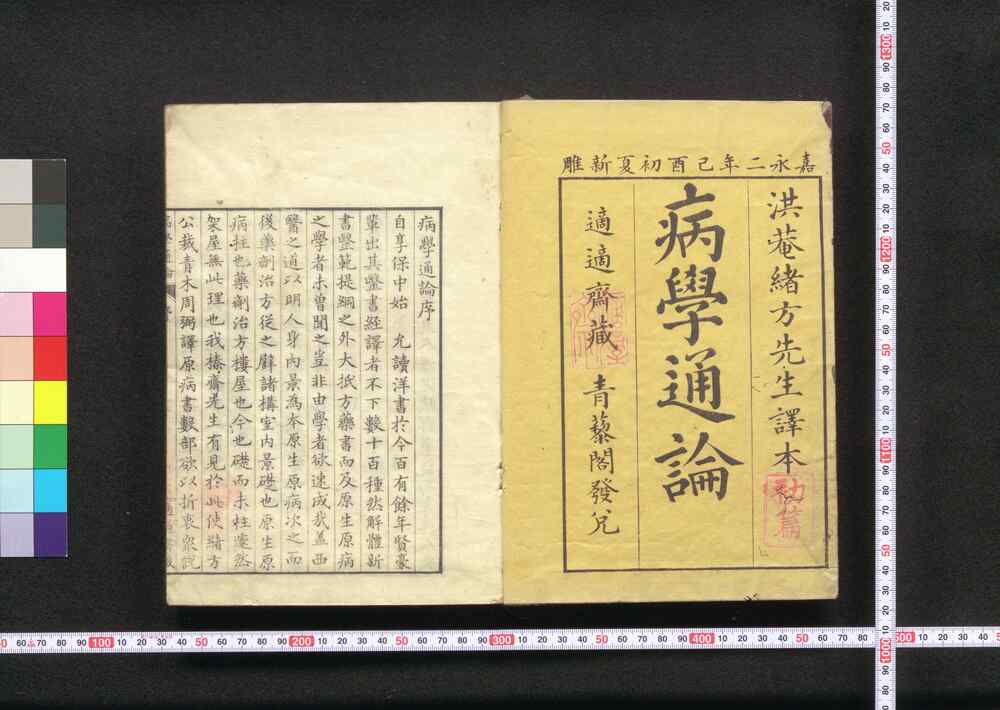 嘉永二年己酉初夏新雕
洪菴緒方先生譯本
初篇
病學通論
適適齋藏 青藜閣發兌
病學通論序
自享保中始 允讀洋書於今百有餘年賢豪
輩出其醫書經譯者不下數十百種然解體新
書醫範提綱之外大抵方藥書而及原生原病
之學者未曽聞之豈非由學者欲速成哉盖西
醫之道以明人身內景為本原生原病次之而
後藥劑治方從之譬諸搆室內景礎也原生原
病柱也藥劑治方樓屋也今也礎而未柱遽然
架屋無此理也我榛齋先生有見於此使緒方
公裁青木周弼譯原病書數部欲以折衷衆說